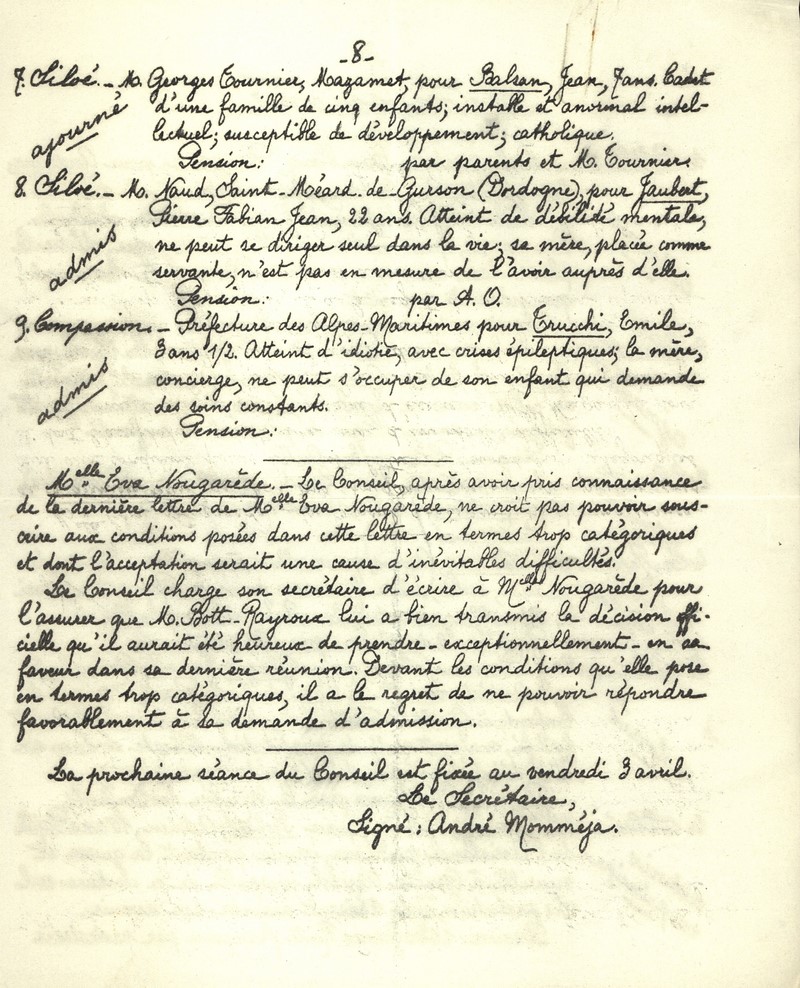 -8-
7. Siloé. - M. Georges Tournier, Mazamet, pour Balsan, Jean, 7 ans. Cadet
d'une famille de cinq enfants; instable et anormal intel-
lectuel; susceptible de développement; catholique.
ajourné
Pension: par parents et M. Tournier.
8. Siloé. - M. Naud, Saint-Méard-de-Gurson (Dordogne), pour Jaubert,
Pierre Fabian Jean, 22 ans. Atteint de débilité mentale,
ne peut se diriger seul dans la vie; sa mère, placée comme
admis
servante, n'est pas en mesure de l'avoir auprès d'elle.
Pension: par A. O.
9. Compassion. - Préfecture des Alpes-Maritimes pour Trucchi, Emile,
3 ans 1/2. Atteint d'idiotie, avec crises épileptiques; la mère,
concierge, ne peut s'occuper de son enfant qui demande
admis
des soins constants.
Pension:
Melle Eva Nougarède. - Le Conseil, après avoir pris connaissance
de la dernière lettre de Melle Eva Nougarède, ne croit pas pouvoir sous-
crire aux conditions posées dans cette lettre en termes trop catégoriques
et dont l'acceptation serait une cause d'inévitables difficultés.
Le Conseil charge son secrétaire d'écrire à Melle Nougarède pour
l'assurer que M. Bott-Rayroux lui a bien transmis la décision offi-
cielle qu'il aurait été heureux de prendre - exceptionnellement - en sa
faveur dans sa dernière réunion. Devant les conditions qu'elle pose
en termes trop catégoriques, il a le regret de ne pouvoir répondre
favorablement à sa demande d'admission.
La prochaine séance du Conseil est fixée au vendredi 3 avril.
Le Secrétaire,
Signé: André Momméja.